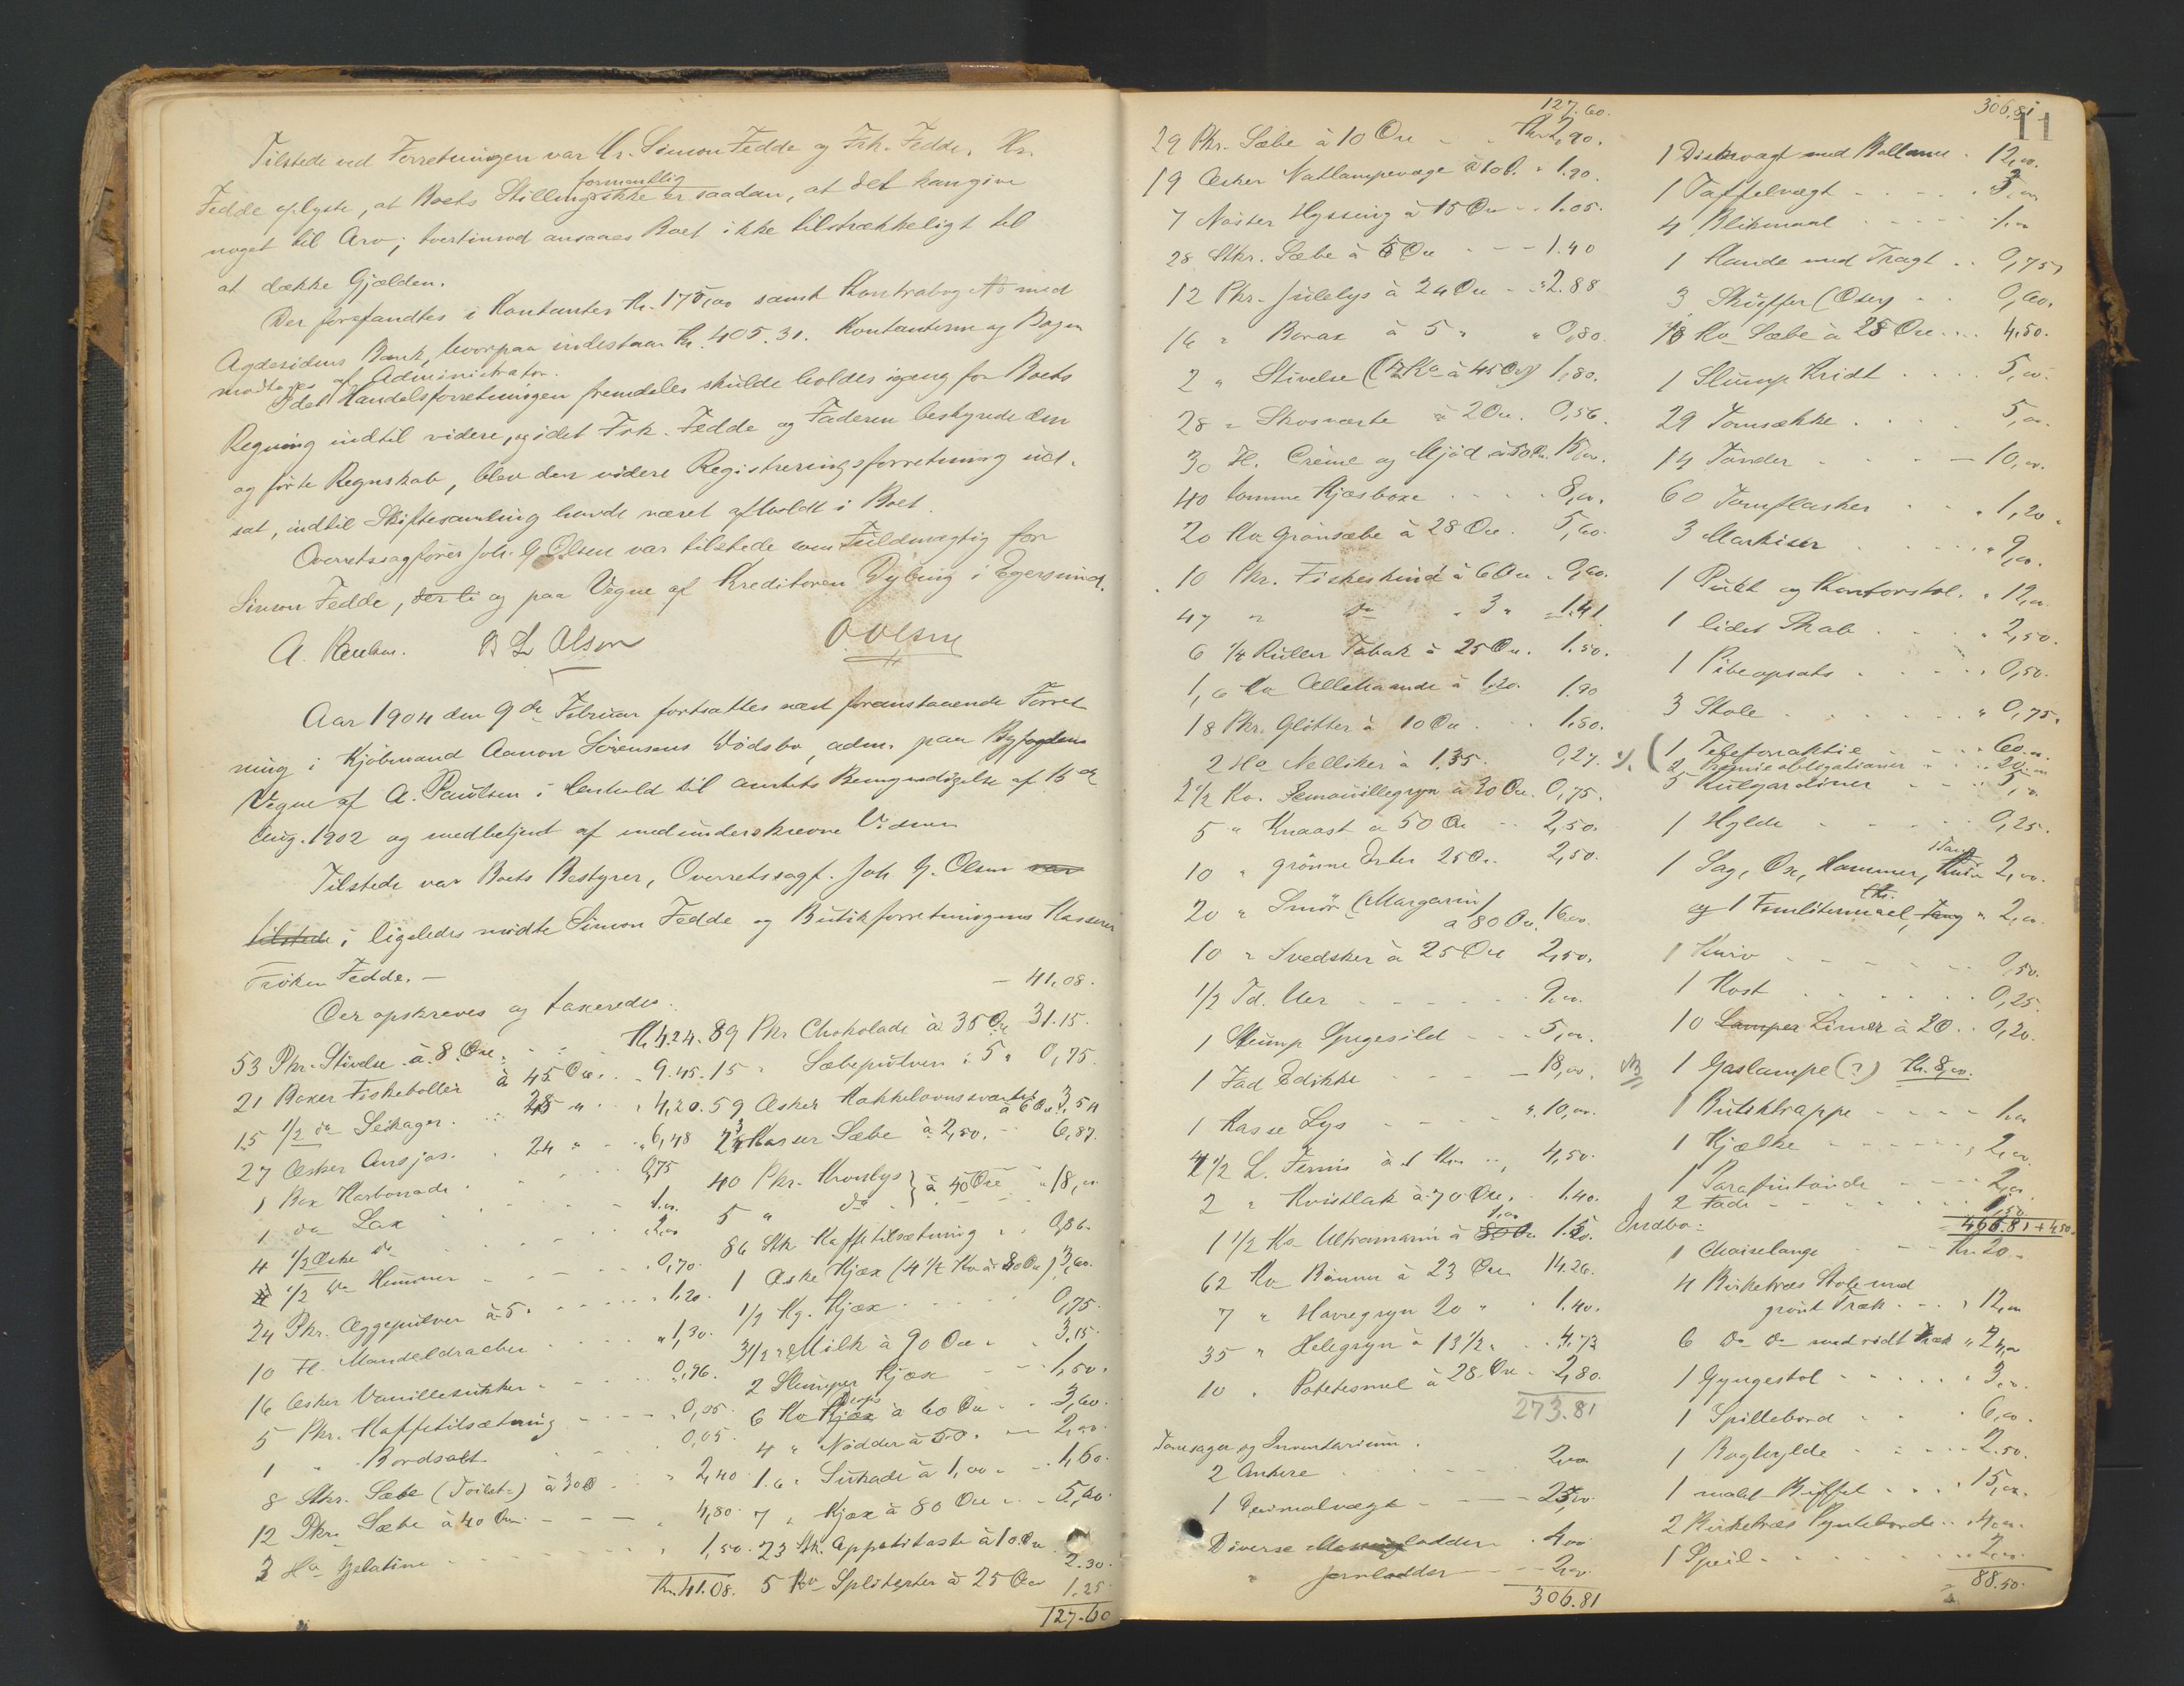 Tilstede ved Forretningen var Hr. Simon Fedde og Frk. Fedde. Hr.
Fedde oplyste, at Boets Stilling formentlig ikke er saadan, at det kan give
noget til Arv; tvertimod ansaaes Boet ikke tilstrækkeligt til
at dække Gjælden.
Der forefandtes i Kontanter Kr. 175,00 samt Kontrabog No med
Agdesidens Bank, hvorpaa indestaar Kr. 405.31. Kontanterne og Bogen
modtoges af Administrator.
Idet Handelsforretningen fremdeles skulde holdes igang for Boets
Regning indtil videre, og idet Frk. Fedde og Faderen bestyrede den
og førte Regnskab, blev den videre Registreringsforretning ud-
sat, indtil Skiftesamling havde været afholdt i Boet.
Overretssagfører Joh. G. Olsen var tilstede som Fuldmægtig for
Simon Fedde, og paa Vegne af Kreditoren Dybing i Egersund.
A. Paulsen. B L Olsen O Olsen
Aar 1904 den 9de Februar fortsattes næst foranstaaende Forret
ning i Kjøbmand Aanon Sörensens Dødsbo, adm. paa Byfogdens
Vegne af A. Paulsen i Henhold til Amtets Bemyndigelse af 15de
Aug. 1902 og medbetjent af medunderskrevne Vidner
Tilstede var Boets Bestyrer, Overretssagf. Joh. G. Olsen var
tilstede; ligeledes mødte Simon Fedde og Butikforretningens Kasserer
Frøken Fedde. —
Der opskreves og taxeredes.
53 Pkr. Stivelse à 8 Øre. Kr. 4.24.
21 Boxer Fiskeboller à 45 Øre. 9.45.
15 1/2 do Seikager. 28 " 4,20.
27 Æsker Ansjos. 24 " 6,48
1 Box Karbonade 0,75
1 do Lax 1.00
4 1/2 Æske do 2,00
1/2 do Hummer 0,70.
24 Pkr. Æggepulver à 5. 1,20.
10 Fl. Mandeldraaber 1,30.
16 Æsker Vanillesukker 0,96.
5 Pkr. Kaffetilsætning 0,05.
1 " Bordsalt 0,05.
8 Stkr. Sæbe (Toilet-) à 30 Ø 2,40
12 Pkr. Sæbe à 40 Øre 4,80.
3 Hg Gelatine 1,50.
Kr. 41.08.
— 41,08.
89 Pkr Chokolade à 35 Øre 31.15.
15 " Sæbepulver à 5 " 0,75.
59 Æsker Kakkelovnssværte à 6 Øre 3,54
Kasser Sæbe à 2,50. 6,87.
40 Pkr. Kronlys } à 40 Øre 18,00
5 " do
86 Stk Kaffetilsætning 0,86.
1 Æske Kjæx (4 1/2 Ko à 80 Øre) 3,60.
1/2 Kg. Kjæx 0,75.
3 1/2 " Milk à 90 Øre 3.15.
2 Slumper Kjæx 1,50.
6 Ko Drops à 60 Øre 3,60.
4 " Nødder à 50. 2,00.
1.6 " Sukade à 1,00 1,60.
7 " Kjæx à 80 Øre 5,60.
23 Stk. Appetitaste à 10 Øre 2.30.
5 Ko Spliterter à 25 Øre 1.25.
127.60
127.60.
29 Pkr. Sæbe à 10 Øre Kr. 2,90.
19 Æsker Natlampevæge à 10 Ø. 1.90.
7 Nøster Hyssing à 15 Øre 1.05.
28 Stkr. Sæbe à 5 Øre 1.40
12 Pkr. Julelys à 24 Øre 2.88
16 " Borax à 5 " 0,80.
2 " Stivelse (4 Ko à 45 Øre) 1,80.
28 " Skosværte à 2 Øre. 0,56.
30 Fl. Crème og Mjød à 50 Ø. 15,00.
40 tomme Kjæsboxe 8,00.
20 Ko Grønsæbe à 28 Øre. 5,60.
10 Pkr. Fiskeskind à 6 Øre 0,60.
47 " do " 3 " 1.41.
6 1/4 Ruller Tobak à 25 Øre. 1.50.
1,6 Ko Allehaande à 1.20. 1.90
18 Pkr. Glitter à 10 Øre 1.80.
2 Hg Nelliker à 1.35. 0,27.
2 1/2 Ko. Semouillegryn à 30 Øre. 0,75.
5 " Knaast à 50 Øre 2,50.
10 " grønne Erter 25 Ør. 2,50.
20 " Smør (Margarin) à 80 Ør. 16.00.
10 " Svedsker à 25 Øre 2,50.
1/2 Td. Uer 9.00.
1 Slump Spegesild 5,00.
1 Fad Edikke 18,00.
1 Kasse Lys 10,00.
4 1/2 L. Fernis à 1 Kr. 4,50.
2 " Kvistlak à 70 Øre. 1.40.
1 1/2 Ko Ultramarin à 1,00 80 Ø. 1.50.
62 Ko Bønner à 23 Øre 14.26.
7 " Havregryn 20 " 1.40.
35 " Helegryn à 13 1/2 " 4,73
10 " Potetesmel à 28 Øre 2,80.
273.81
Tomsager og Inventarium.
2 Ankere 2,00
1 Decimalvægt 25,00.
Diverse lodder 4,00
" Jernlodder 2,00.
306.81
306.81
11
1 Diskvægt med Ballance. 12,00.
1 Taffelvægt 3,00
4 Blikmaal 1,00
1 Kande med Tragt 0,75
3 Skuffer (Øser) 0,60.
Ko Sæbe à 25 Øre 4.50.
1 Slump Kridt 5,00.
29 Tomsække 5,00.
14 Tønder 10,00.
60 Tomflasker 1,20.
3 Markiser 9,00.
1 Pult og Kontorstol. 12,00
1 lidet Skab 2,50.
1 Pibeopsats 0,50.
3 Stole 0,75.
1 Telefonaktie 60.00
2 Præmieobligationer 20.00
5 Rulgardiner
1 Hylde 0,25.
1 Sag, Øx, Hammer, Tang Kniv 2,00.
og 1 Femlitermaal, Tang 2,00.
1 Kniv 0,50.
1 Kost 0,25.
10 Lamper Limer à 2 Ø 0,20.
NB 1 Gaslampe (?) Kr. 8,00.
1 Butiktrappe 1.00
1 Kjælke 2,00
1 Parafintønde 2,00.
2 Fade 1,50
466.81 + 4.50.
Indbo:
1 Chaiselonge Kr. 20.-
4 Birketræs Stole med
grønt Træk 12,00
6 do do med rødt Træk
1 Gyngestol 3,00.
1 Spillebord 6,00.
1 Boghylde 2.50.
1 malet Buffet 15,00.
2 Birketræs Pyntebord 4.00.
1 Speil 2,00.
88.50.